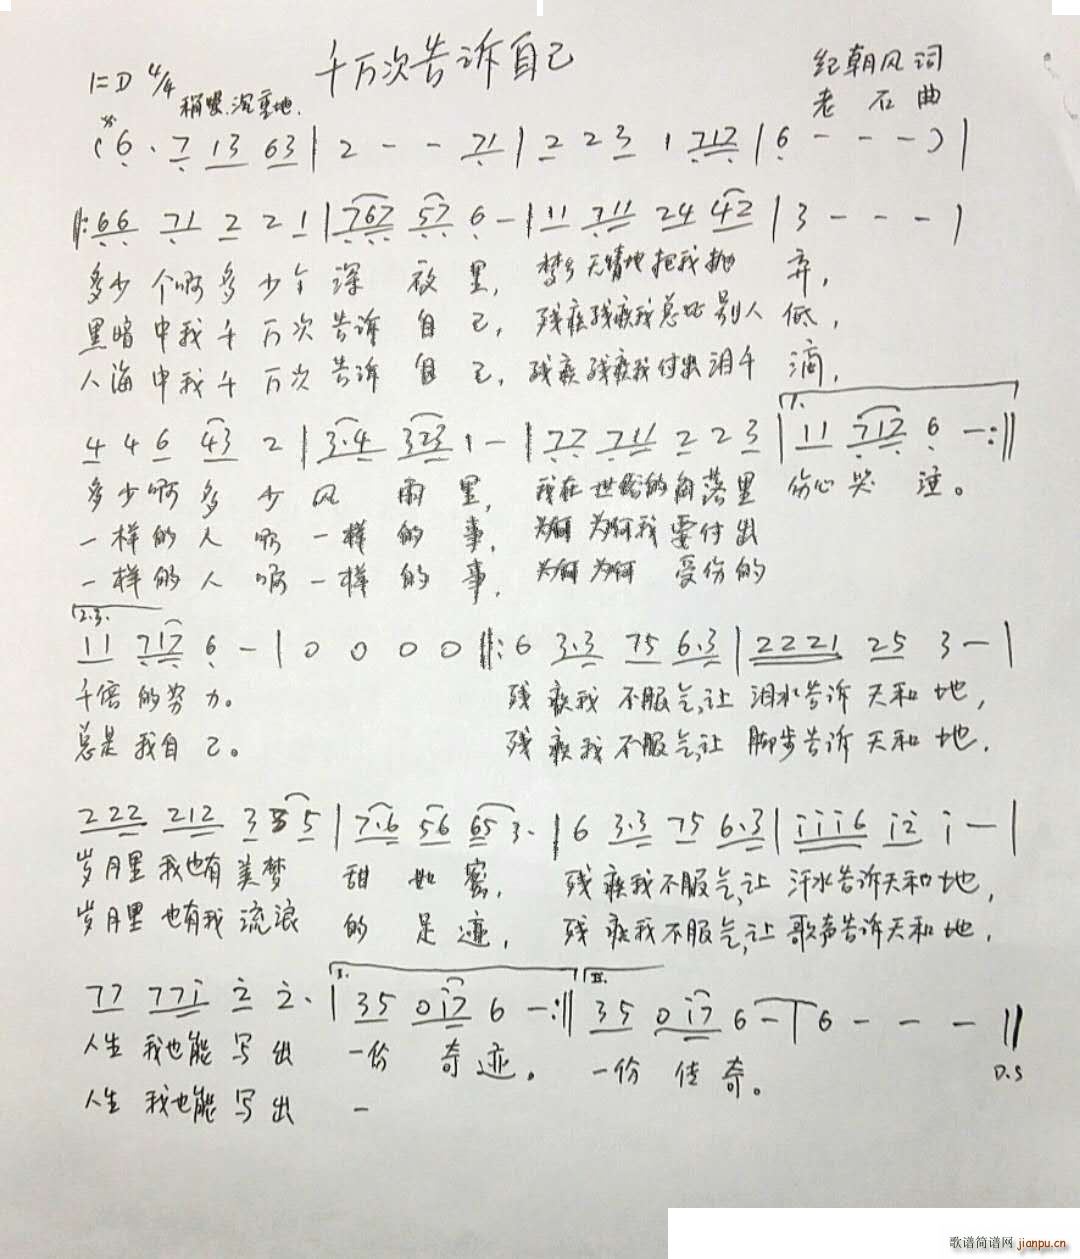 千万次告诉自己
1=D 4/4 稍慢.沉重地.
纪朝风 词
老石 曲
(6· 7 13 63 | 2 - - 71 | 2 2 3 1 712 | 6 - - - ) |
||: 66 71 2 2 1 | 767 57 6 - | 11 711 24 42 | 3 - - - |
多少个啊多少个深夜里, 梦乡无情地把我抛弃,
黑暗中我千万次告诉自己, 残疾残疾我总比别人低,
人海中我千万次告诉自己, 残疾残疾我付出泪千滴,
4 4 6 43 2 | 3·4 323 1 - | 77 711 2 2 3 | 1. 11 717 6 - :||
多少啊多少风雨里, 我在世俗的角落里伤心哭泣。
一样的人啊一样的事, 为何为何我要付出
一样的人啊一样的事, 为何为何受伤的
2.3.
11 717 6 - | 0 0 0 0 ||: 6 3·3 75 6·3 | 2221 25 3 - |
千倍的努力。 残疾我不服气,让泪水告诉天和地,
总是我自己。 残疾我不服气,让脚步告诉天和地.
222 212 3 5 5 | 7·6 56 65 3· | 6 3·3 75 6·3 | iii6 i2 i - |
岁月里我也有美梦甜如蜜, 残疾我不服气,让汗水告诉天和地,
岁月里也有我流浪的足迹, 残疾我不服气,让歌声告诉天和地,
77 77i 2 2· | I. 35 0i7 6 - :|| II. 35 0i7 6 - | 6 - - - ||
D.S
人生我也能写出一份奇迹。 一份传奇。
人生我也能写出一
歌谱简谱网 jianpu.cn